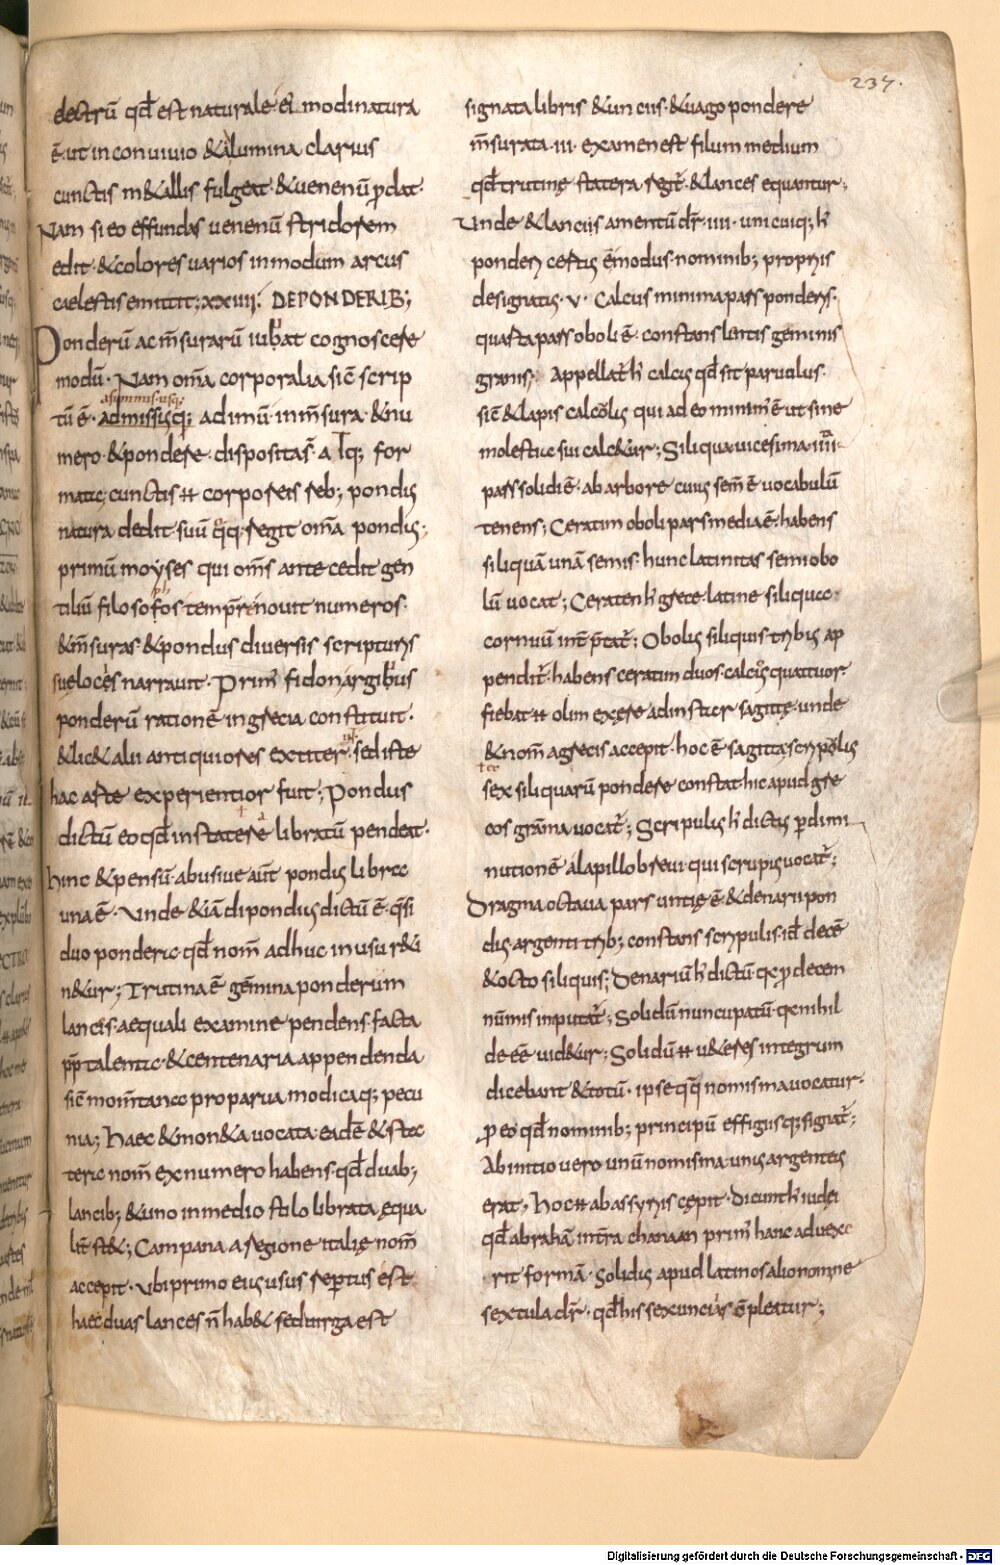 237.
electrū qđ est naturale ei modi natura
ē ut in conuiuio & ad lumina clarius
cunctis m&allis fulgeat. & uenenū ꝓdat.
Nam si eo effundas uenenū stridorem
edit. & colores uarios in modum arcus
caelestis emittit; xxiiij. DE PONDERIB;
Ponderū ac m̄surarū iubat cognoscere
modū. Nam om̄a corporalia sic̄ scrip
tū ē. a summis usq;
admissisq; ad imū in m̄sura. & nu
mero. & pondere. disposita s̄. atq; for
mata; cunctis ̄n corporeis reb; pondus
natura dedit. suū q̊q; regit om̄a pondus;
primū moyses qui om̄s ante cedit gen
tiliū filosofos temp̄re nouit numeros.
& m̄suras. & pondus diuersis scripturis
sue locis narrauit. Prim' fidon argibus
ponderū rationē in grecia constituit.
& lic& alii antiquiores extiter̄. sed iste
hac arte experientior fuit; Pondus
dictū eo qđ in statere libratū pendeat.
hinc & pensū. abusiue aūt pondus libre
una ē. Unde & iā dipondius dictū ē. q̄si
duo pondera. qđ nom̄ adhuc in usu r&i
n&ur; Trutina ē gēmina ponderum
lancis. aequali examine pendens. facta
ꝓp̄ talenta. & centenaria appendenda
sic̄ mom̄tana pro parua modicaq; pecu
nia; Haec & mon&a uocata. eadē & stec
teric nom̄ ex numero habens. qđ duab;
lancib; & uno in medio stilo librata ęqua
lit̄ st&; Campana a regione italię nom̄
accepit. ubi primo eius usus repertus est.
haec duas lances n̄ hab& sed uirga est
signata libris & unciis. & uago pondere
m̄surata. iii. examen est filum medium
qđ trutinę statera regit̄. & lances equantur;
Unde & lanciis amentū dr̄. iiii. unicuiq; h̄
ponderi certus ē modus. nominib; propriis
designatus. v. Calcus minima pars ponderis.
quarta pars oboli ē. constans lentis geminis
granis; Appellat̄ h̄ calcus qđ sit paruulus.
sic̄ & lapis calculus qui adeo minim' ē ut sine
molestia sui calc&ur; Siliqua uicesima iiii
pars solidi ē. ab arbore cuius sem̄ ē uocabulū
tenens; Ceratim oboli pars media ē. habens
siliquā unā semis. hunc latinitas semiobo
lū uocat; Ceraten h̄ grece. latine siliqua.
cornuū int̄p̄tat̄; Obolus siliquis tribus ap
pendit̄. habens ceratim duos. calcus quattuor.
fiebat ̄n olim ex ęre ad instar sagittę. unde
& nom̄ a grecis accepit. hoc ē sagitta; scripolis
sex siliquarū pondere constat. hic apud gre
cos gram̄a uocat̄; Scripulus h̄ dictus ꝑ dimi
nutionē a lapillo breui qui scrupus uocat̄;
Dragma octaua pars untię ē. & denarii pon
dus argenti. trib; constans scripulis. id̄ decē
& octo siliquis; Denariū h̄ dictū. qa pro decem
nūmis imputat̄; Solidū nuncupatū. qa nihil
deeē uid&ur; Solidū ̄n u&eres integrum
dicebant & totū. ipse q̄q; nomisma uocatur.
ꝓ eo qđ nominib; principū effigiisq; signat̄;
Ab initio uero unū nomisma. unus argenteus
erat; Hoc ̄n ab assyriis cępit. dicunt h̄ iudęi
qđ abrahā in t̄ra chanaan prim' hanc aduexe
rit formā. solidus apud latinos alio nomine
sextula dr̄. qđ his sex uncia cōpleatur;
Digitalisierung gefördert durch die Deutsche Forschungsgemeinschaft - DFG